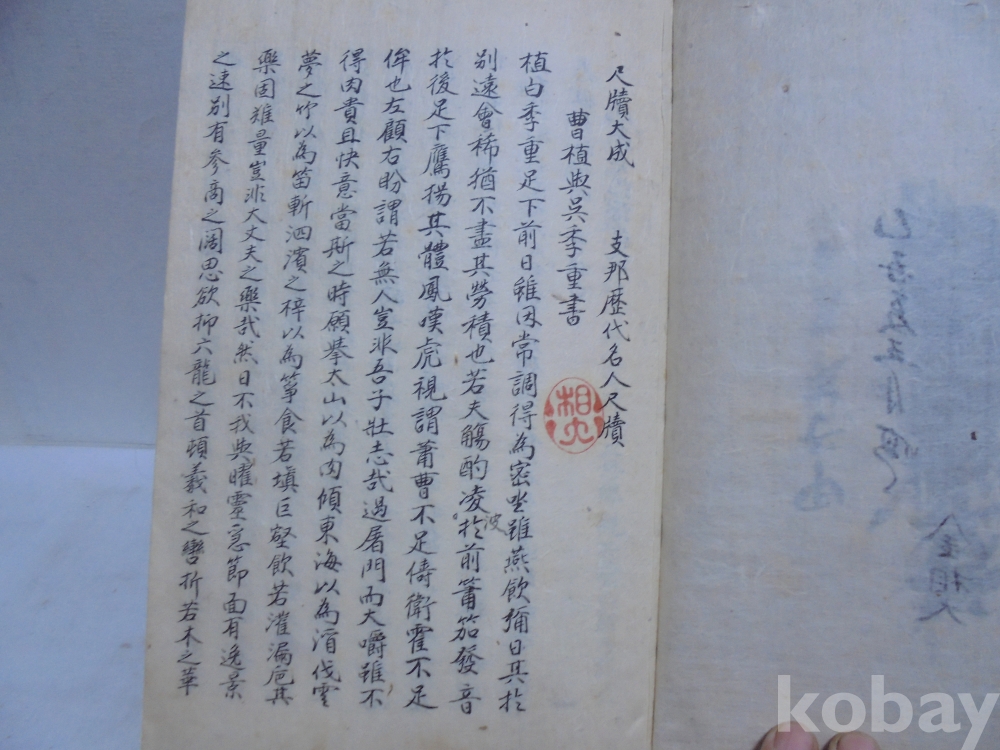 尺牘大成　支那歷代名人尺牘
曹植與吳季重書
植白季重足下前日雖因常調得為密坐雖燕飲彌日其於
別遠會稀猶不盡其勞積也若夫觴酌凌波於前簫笳發音
於後足下鷹揚其體鳳嘆虎視謂蕭曹不足儔衛霍不足
侔也左顧右盼謂若無人豈非吾子壯志哉過屠門而大嚼雖不
得肉貴且快意當斯之時願擧太山以為肉傾東海以為酒伐雲
夢之竹以為笛斬泗濱之梓以為箏食若塡巨壑飲若灌漏巵其
樂固難量豈非大丈夫之樂哉然日不我與曜靈急節面有逸景
之速別有參商之闊思欲抑六龍之首頓羲和之轡折若木之華
相
五月
金相
kobay